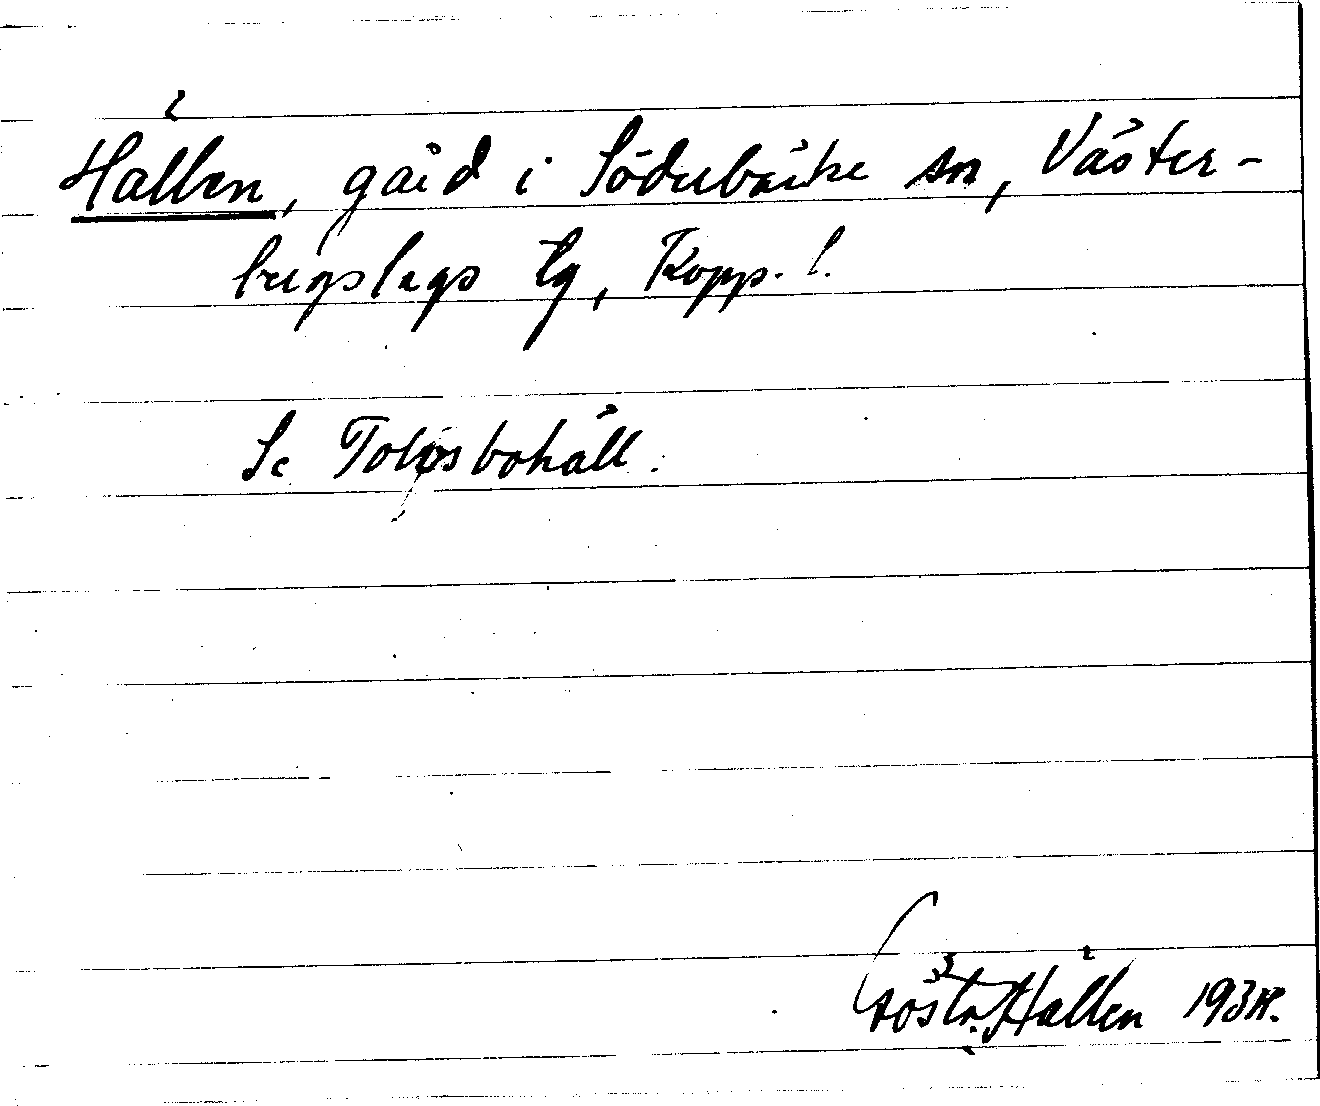 Hällen, gård i Söderbärke sn, Väster-
bergslags tg, Kopp. l.
Se Tolvsbohäll.
Gösta Hällén 1938.